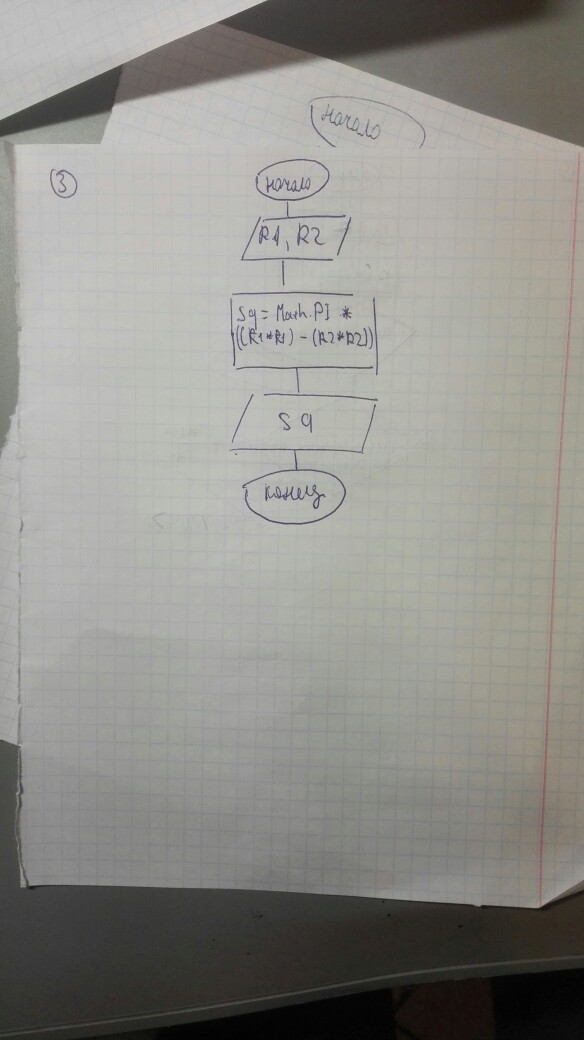 начало
3
начало
R1, R2
Sq = Math.PI *
((R1*R1) - (R2*R2))
Sq
конец